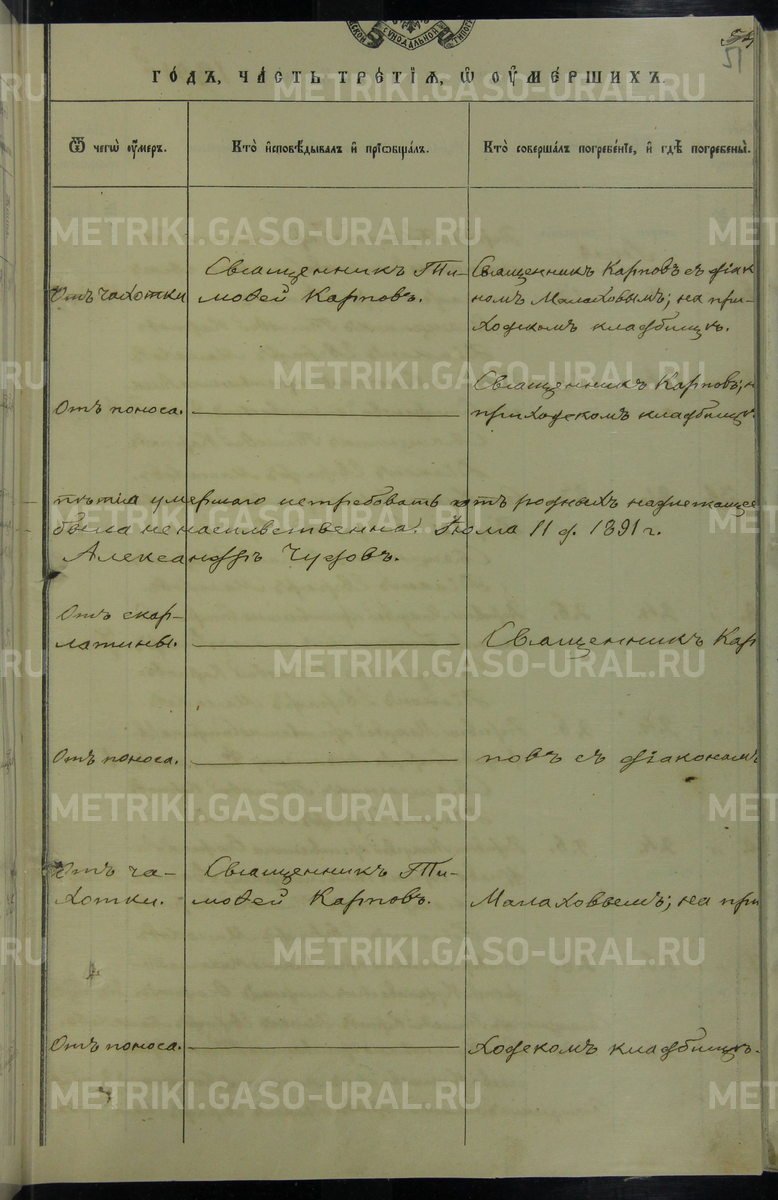 СѴНОДАЛЬНОЙ
51
ГО́ДЪ, ЧА́СТЬ ТРЕ́ТІѦ, Ѡ҆ ОУ҆МЕ́РШИХЪ.
Ѿ чегѡ̀ оу҆́меръ.
Кто̀ и҆сповѣ́дывалъ и҆ прїѡбща́лъ.
Кто̀ соверша́лъ погребе́нїе, и҆ гдѣ̀ погребены̀.
Отъ чахотки
Священникъ Ти-
моѳей Карповъ.
Священникъ Карповъ съ діак
номъ Малаховымъ; на при-
ходскомъ кладбищѣ.
Отъ поноса.
Священникъ Карповъ; н
приходскомъ кладбищѣ.
умершаго нетребовать отъ родныхъ надлежащее
была не насильственна. Іюля 11 д. 1891 г.
Александръ Чудовъ.
Отъ скар-
латины.
Священникъ Кар
Отъ поноса.
повъ съ діакономъ
Отъ ча-
хотки.
Священникъ Ти-
моѳей Карповъ.
Малаховымъ; на при
Отъ поноса.
ходскомъ кладбищѣ.
METRIKI.GASO-URAL.RU